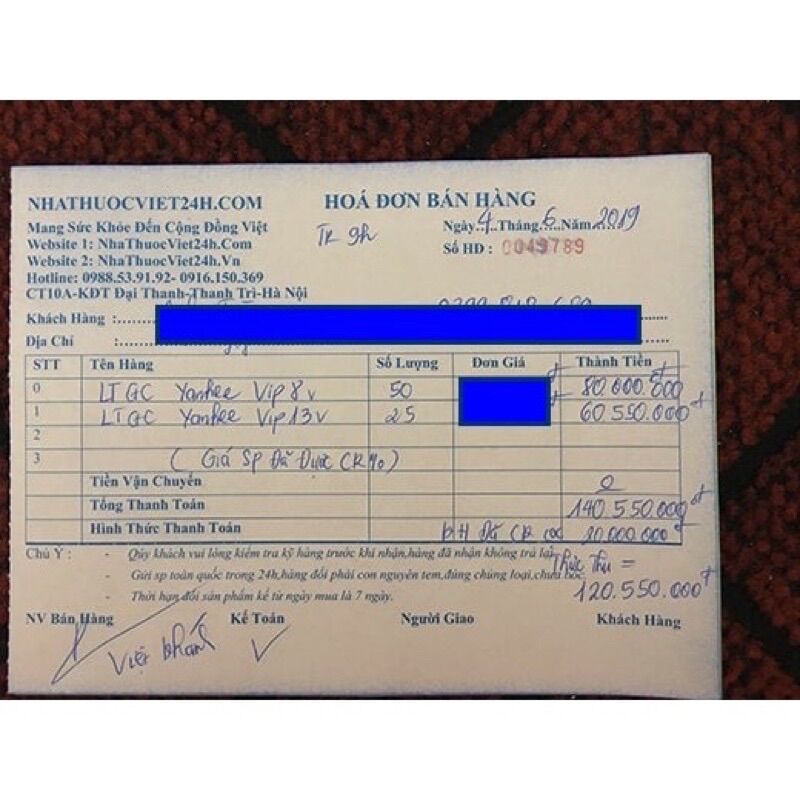 NHATHUOCVIET24H.COM
HOÁ ĐƠN BÁN HÀNG
Mang Sức Khỏe Đến Cộng Đồng Việt
Ngày..4..Tháng..6..Năm..2019
Website 1: NhaThuocViet24h.Com
Số HĐ : 0049789
Website 2: NhaThuocViet24h.Vn
Hotline: 0988.53.91.92- 0916.150.369
CT10A-KĐT Đại Thanh-Thanh Trì-Hà Nội
Khách Hàng :
Địa Chỉ :
STT Tên Hàng Số Lượng Đơn Giá Thành Tiền
0 LTGC Yankee Vip 8v 50 80.000.000
1 LTGC Yankee Vip 13v 25 60.550.000đ
2
3 (Giá Sp Đã Được CK %)
Tiền Vận Chuyển 0
Tổng Thanh Toán 140.550.000đ
Hình Thức Thanh Toán Đã CK cọc 20.000.000đ
Chú Ý : - Qúy khách vui lòng kiểm tra kỹ hàng trước khi nhận,hàng đã nhận không trả lại
Thực Thu =
- Gửi sp toàn quốc trong 24h,hàng đổi phải còn nguyên tem,đúng chủng loại,chưa bóc
120.550.000đ
- Thời hạn đổi sản phẩm kể từ ngày mua là 7 ngày.
NV Bán Hàng Kế Toán Người Giao Khách Hàng
Việt Khánh